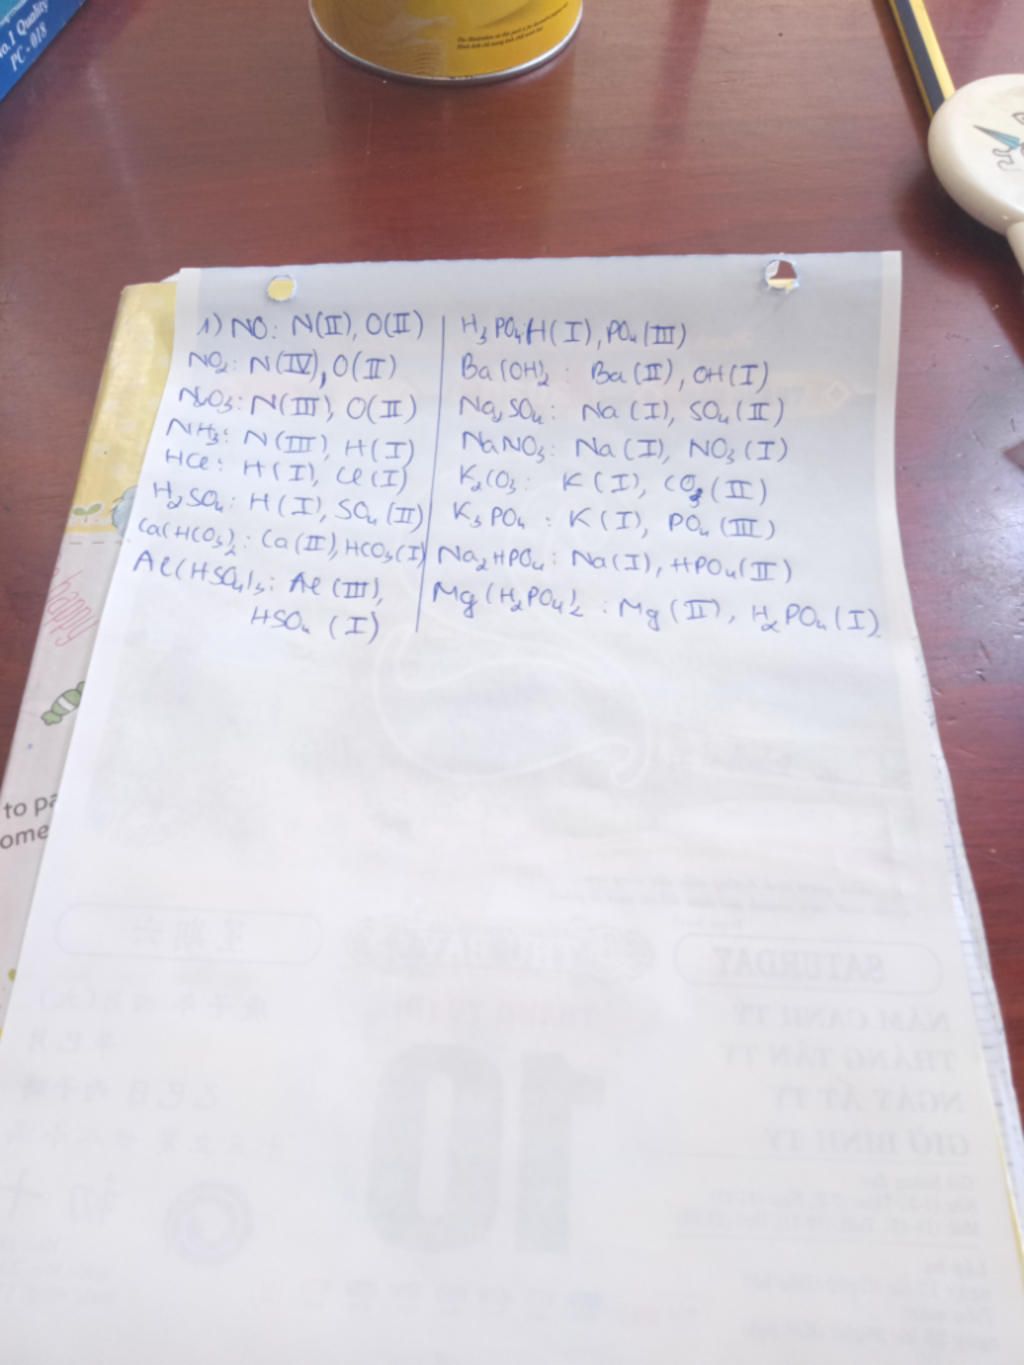 No.1 Quality
PC - 018
1) NO: N(II), O(II)
NO2: N(IV), O(II)
N2O3: N(III), O(II)
NH3: N(III), H(I)
HCl: H(I), Cl(I)
H2SO4: H(I), SO4(II)
Ca(HCO3)2: Ca(II), HCO3(I)
Al(HSO4)3: Al(III),
HSO4 (I)
H3PO4: H(I), PO4(III)
Ba(OH)2: Ba(II), OH(I)
Na2SO4: Na(I), SO4(II)
NaNO3: Na(I), NO3(I)
K2CO3: K(I), CO3(II)
K3PO4: K(I), PO4(III)
Na2HPO4: Na(I), HPO4(II)
Mg(H2PO4)2: Mg(II), H2PO4(I)
happy
to pa
ome
SATURDAY
NĂM CANH TÝ
THÁNG TÂN TỴ
NGÀY ẤT TỴ
GIỜ BÍNH TÝ
星期六
10
初十